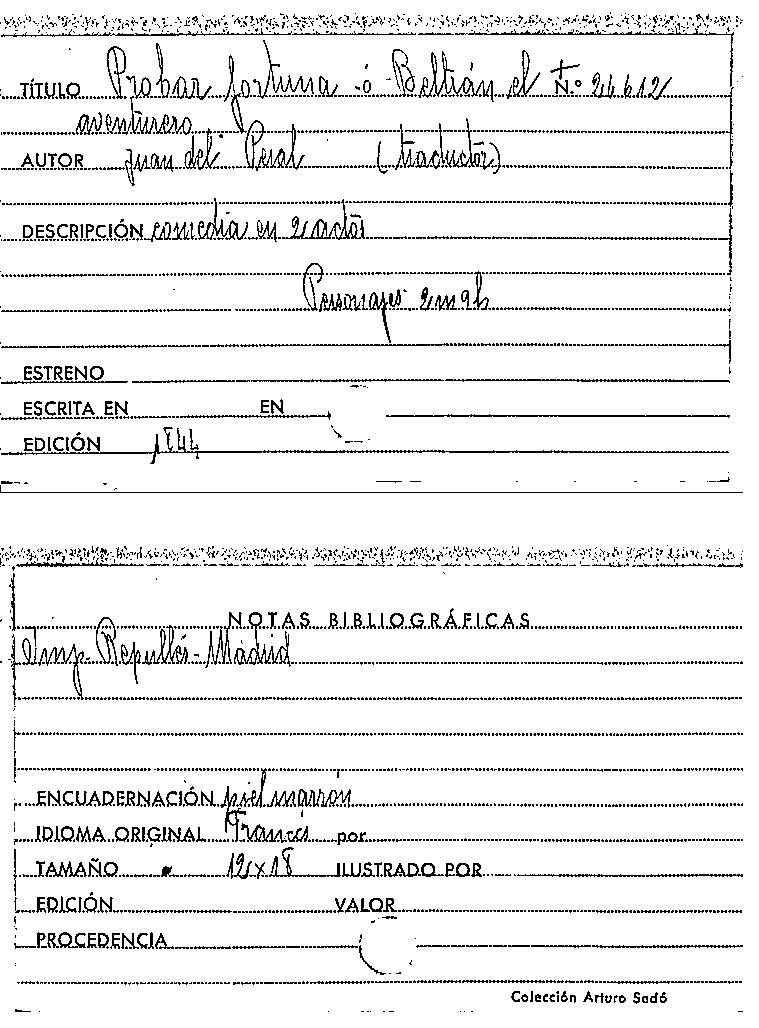 TÍTULO Probar fortuna ó Beltrán el N.º 24612
aventurero
AUTOR Juan del Peral (traductor)
DESCRIPCIÓN comedia en 2 actos
Personajes 2m 9h
ESTRENO
ESCRITA EN EN
EDICIÓN 1844
NOTAS BIBLIOGRÁFICAS
Imp. Repullés - Madrid
ENCUADERNACIÓN piel marrón
IDIOMA ORIGINAL Francés por
TAMAÑO 12x18 ILUSTRADO POR
EDICIÓN VALOR
PROCEDENCIA
Colección Arturo Sedó